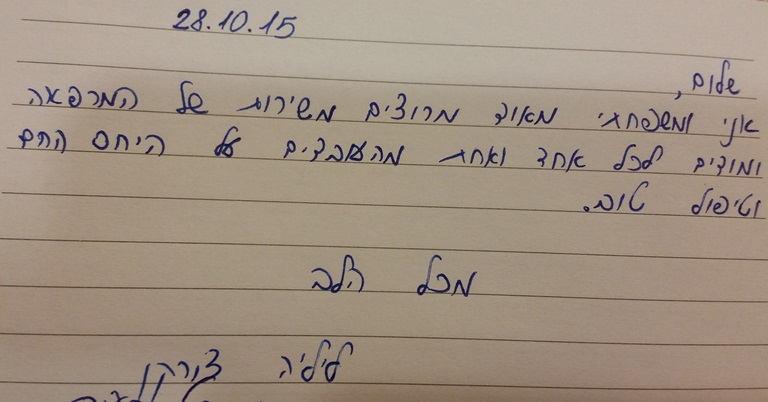 28.10.15
שלום,
אני ומשפחתי מאוד מרוצים משירות של המרפאה
ומודים לכל אחד ואחת מהעובדים על היחס החם
וטיפול טוב.
מכל הלב
ליליה צורקן